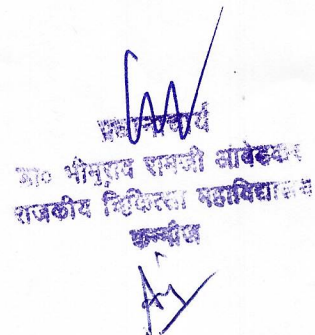 प्रधानाचार्य
डा० भीमराव रामजी आंबेडकर
राजकीय चिकित्सा महाविद्यालय
कन्नौज